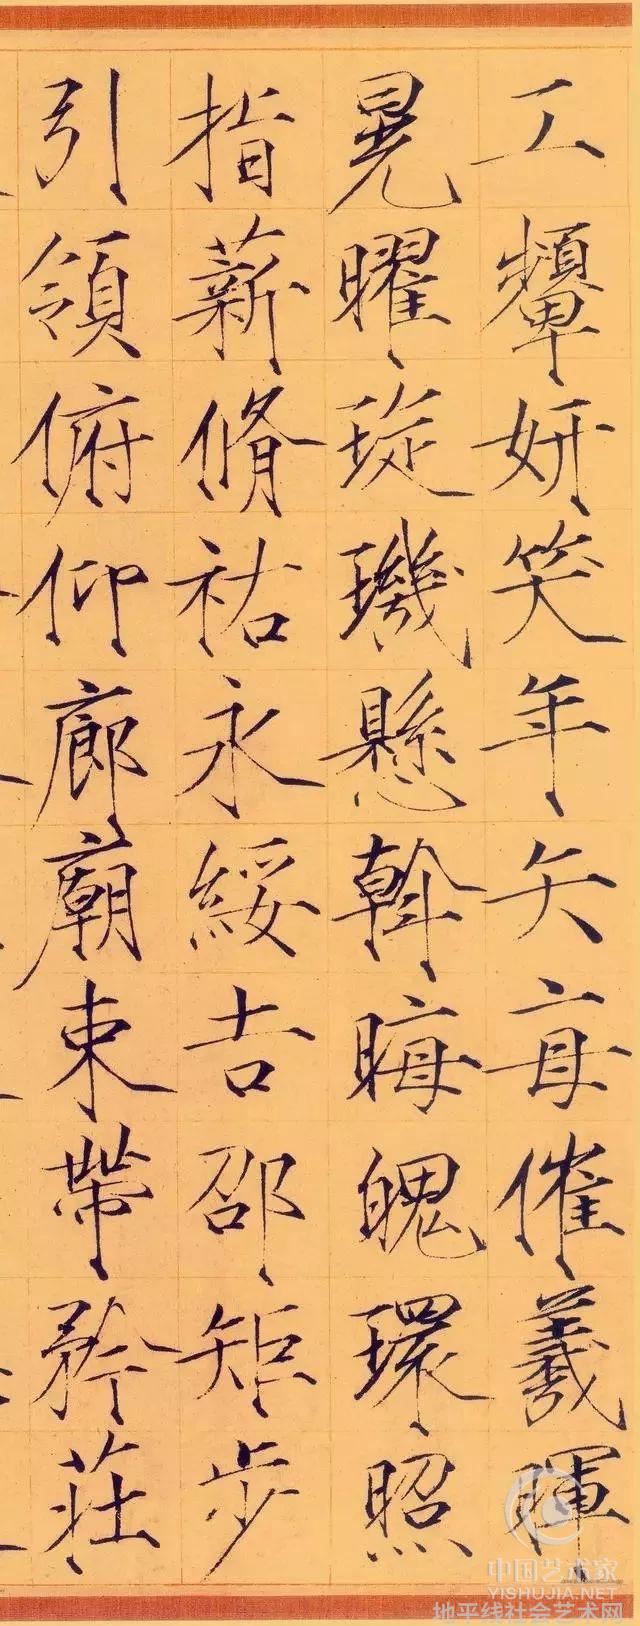 工顰妍笑年矢每催羲暉
晃曜琁璣懸斡晦魄環照
指薪脩祜永綏吉邵矩步
引領俯仰廊廟束帶矜莊
中国艺术家
YISHUJIA.NET
地平线社会艺术网